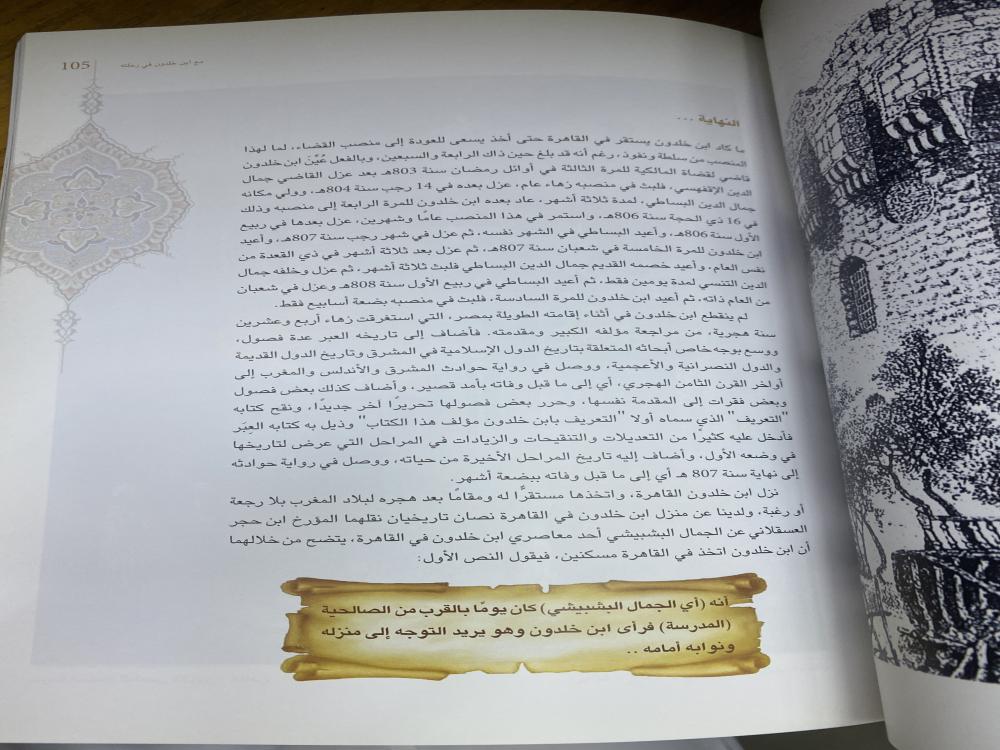 105
مع ابن خلدون في رحلته
النهاية ...
ما كاد ابن خلدون يستقر في القاهرة حتى أخذ يسعى للعودة إلى منصب القضاء، لما لهذا
المنصب من سلطة ونفوذ، رغم أنه قد بلغ حين ذاك الرابعة والسبعين، وبالفعل عُيِّنَ ابن خلدون
قاضي لقضاة المالكية للمرة الثالثة في أوائل رمضان سنة 803هـ بعد عزل القاضي جمال
الدين الإقفهسي، فلبث في منصبه زهاء عام، عزل بعده في 14 رجب سنة 804هـ، وولي مكانه
جمال الدين البساطي، لمدة ثلاثة أشهر، عاد بعده ابن خلدون للمرة الرابعة إلى منصبه وذلك
في 16 ذي الحجة سنة 806هـ، واستمر في هذا المنصب عامًا وشهرين، عزل بعدها في ربيع
الأول سنة 806هـ، وأعيد البساطي في الشهر نفسه، ثم عزل في شهر رجب سنة 807هـ، وأعيد
ابن خلدون للمرة الخامسة في شعبان سنة 807هـ، ثم عزل بعد ثلاثة أشهر في ذي القعدة من
نفس العام، وأعيد خصمه القديم جمال الدين البساطي فلبث ثلاثة أشهر، ثم عزل وخلفه جمال
الدين التنسي لمدة يومين فقط، ثم أعيد البساطي في ربيع الأول سنة 808هـ وعزل في شعبان
من العام ذاته، ثم أعيد ابن خلدون للمرة السادسة، فلبث في منصبه بضعة أسابيع فقط.
لم ينقطع ابن خلدون في أثناء إقامته الطويلة بمصر، التي استغرقت زهاء أربع وعشرين
سنة هجرية، من مراجعة مؤلفه الكبير ومقدمته. فأضاف إلى تاريخه العبر عدة فصول،
ووسع بوجه خاص أبحاثه المتعلقة بتاريخ الدول الإسلامية في المشرق وتاريخ الدول القديمة
والدول النصرانية والأعجمية، ووصل في رواية حوادث المشرق والأندلس والمغرب إلى
أواخر القرن الثامن الهجري، أي إلى ما قبل وفاته بأمد قصير، وأضاف كذلك بعض فصول
وبعض فقرات إلى المقدمة نفسها، وحرر بعض فصولها تحريرًا آخر جديدًا، ونقح كتابه
"التعريف" الذي سماه أولا "التعريف بابن خلدون مؤلف هذا الكتاب" وذيل به كتابه العِبَر
فأدخل عليه كثيرًا من التعديلات والتنقيحات والزيادات في المراحل التي عرض لتاريخها
في وضعه الأول، وأضاف إليه تاريخ المراحل الأخيرة من حياته، ووصل في رواية حوادثه
إلى نهاية سنة 807 هـ أي إلى ما قبل وفاته ببضعة أشهر.
نزل ابن خلدون القاهرة، واتخذها مستقرًّا له ومقامًا بعد هجره لبلاد المغرب بلا رجعة
أو رغبة، ولدينا عن منزل ابن خلدون في القاهرة نصان تاريخيان نقلهما المؤرخ ابن حجر
العسقلاني عن الجمال البشبيشي أحد معاصري ابن خلدون في القاهرة، يتضح من خلالهما
أن ابن خلدون اتخذ في القاهرة مسكنين، فيقول النص الأول:
أنه (أي الجمال البشبيشي) كان يومًا بالقرب من الصالحية
(المدرسة) فرأى ابن خلدون وهو يريد التوجه إلى منزله
ونوابه أمامه ..